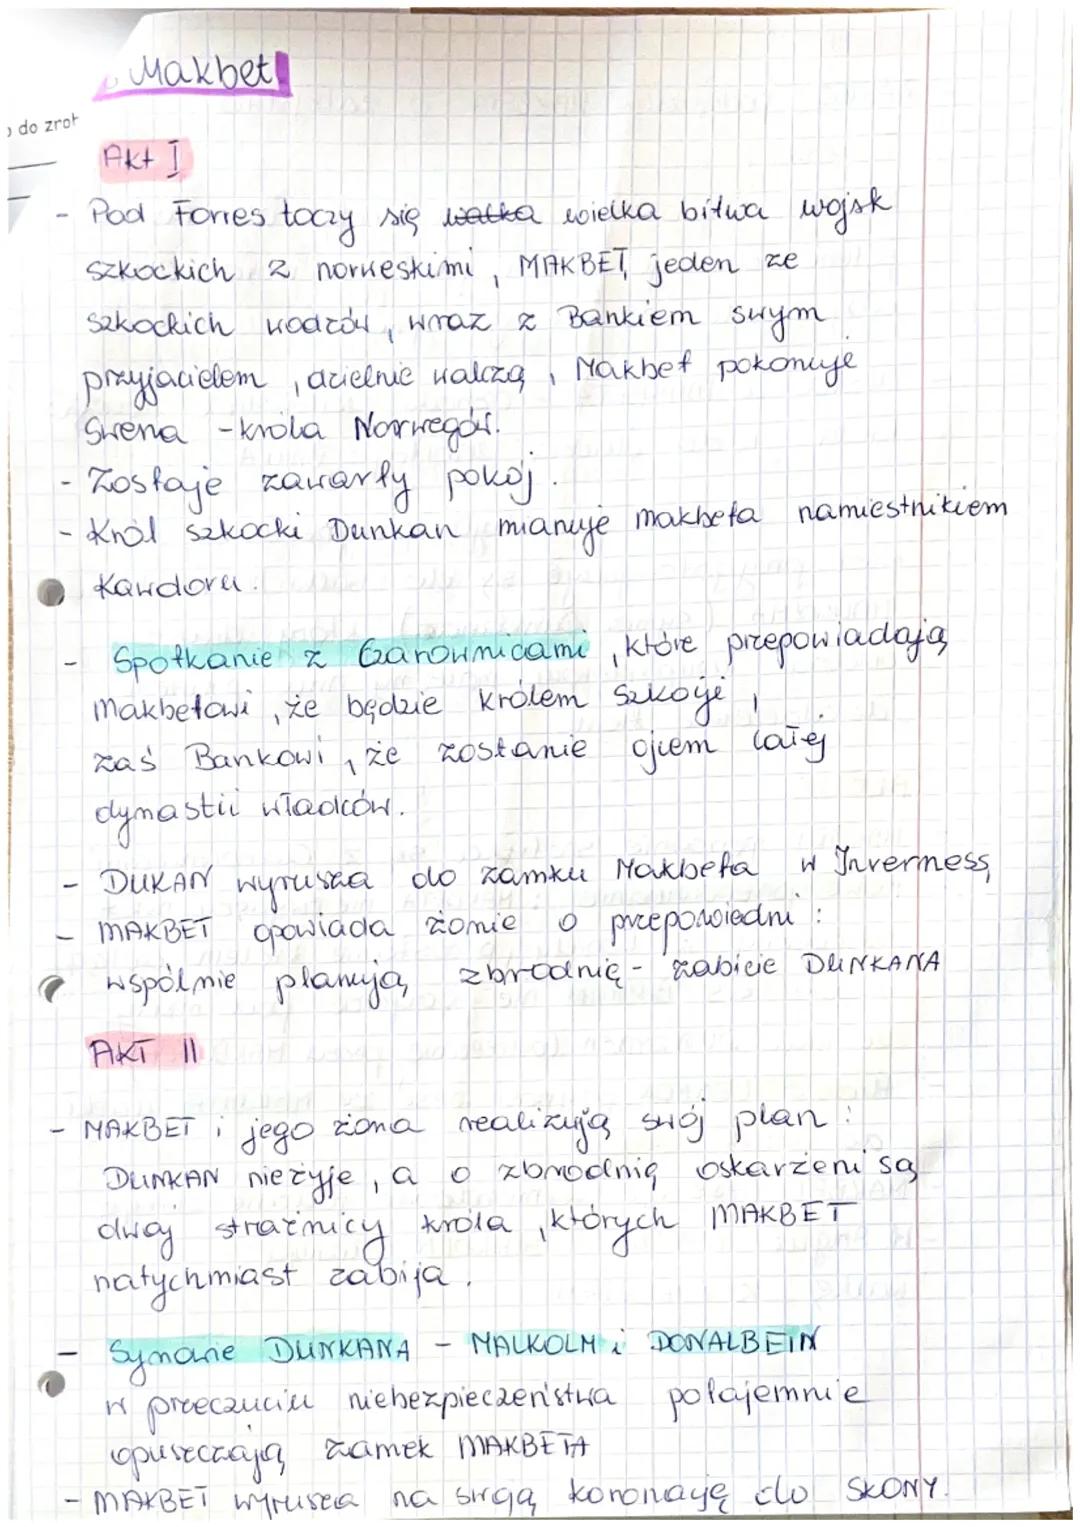 Makbet
do zrot
Akt I
- Pod Forres toczy się walka wielka bitwa wojsk
szkockich z norweskimi, MAKBET, jeden ze
szkockich wodzów, wraz z Bankiem swym
przyjacielem, dzielnie walczą, Makbet pokonuje
Swena - króla Norwegów.
- Zostaje zawarty pokój.
- Król szkocki Dunkan mianuje makbeta namiestnikiem
Kawdoru.
- Spotkanie z Czarownicami, które przepowiadają
Makbetowi, że będzie królem Szkocji,
zaś Bankowi, że zostanie ojcem całej
dynastii władców.
- DUKAN wyrusza do zamku Makbeta w Inverness,
- MAKBET opowiada żonie o przepowiedni:
wspólnie planują zbrodnię - zabicie DUNKANA
AKT II
- MAKBET i jego żona realizują swój plan:
DUNKAN nieżyje, a o zbrodnię oskarżeni są
dwaj strażnicy króla, których MAKBET
natychmiast zabija.
- Synowie DUNKANA - MALKOLM i DONALBEIN
w przeczuciu niebezpieczeństwa potajemnie
opuszczają zamek MAKBETA
- MAKBET wyrusza na swoją koronację do SKONY.